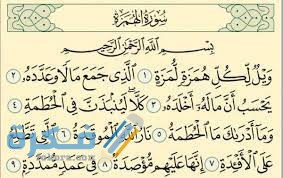 سُورَةُ الْهُمَزَةِ
بِسْمِ اللَّهِ الرَّحْمَٰنِ الرَّحِيمِ
وَيْلٌ لِّكُلِّ هُمَزَةٍ لُّمَزَةٍ ١ الَّذِي جَمَعَ مَالًا وَعَدَّدَهُ ٢
يَحْسَبُ أَنَّ مَالَهُ أَخْلَدَهُ ٣ كَلَّا لَيُنبَذَنَّ فِي الْحُطَمَةِ ٤
وَمَا أَدْرَىٰكَ مَا الْحُطَمَةُ ٥ نَارُ اللَّهِ الْمُوقَدَةُ ٦ الَّتِي تَطَّلِعُ
عَلَى الْأَفْئِدَةِ ٧ إِنَّهَا عَلَيْهِم مُّؤْصَدَةٌ ٨ فِي عَمَدٍ مُّمَدَّدَةٍ ٩